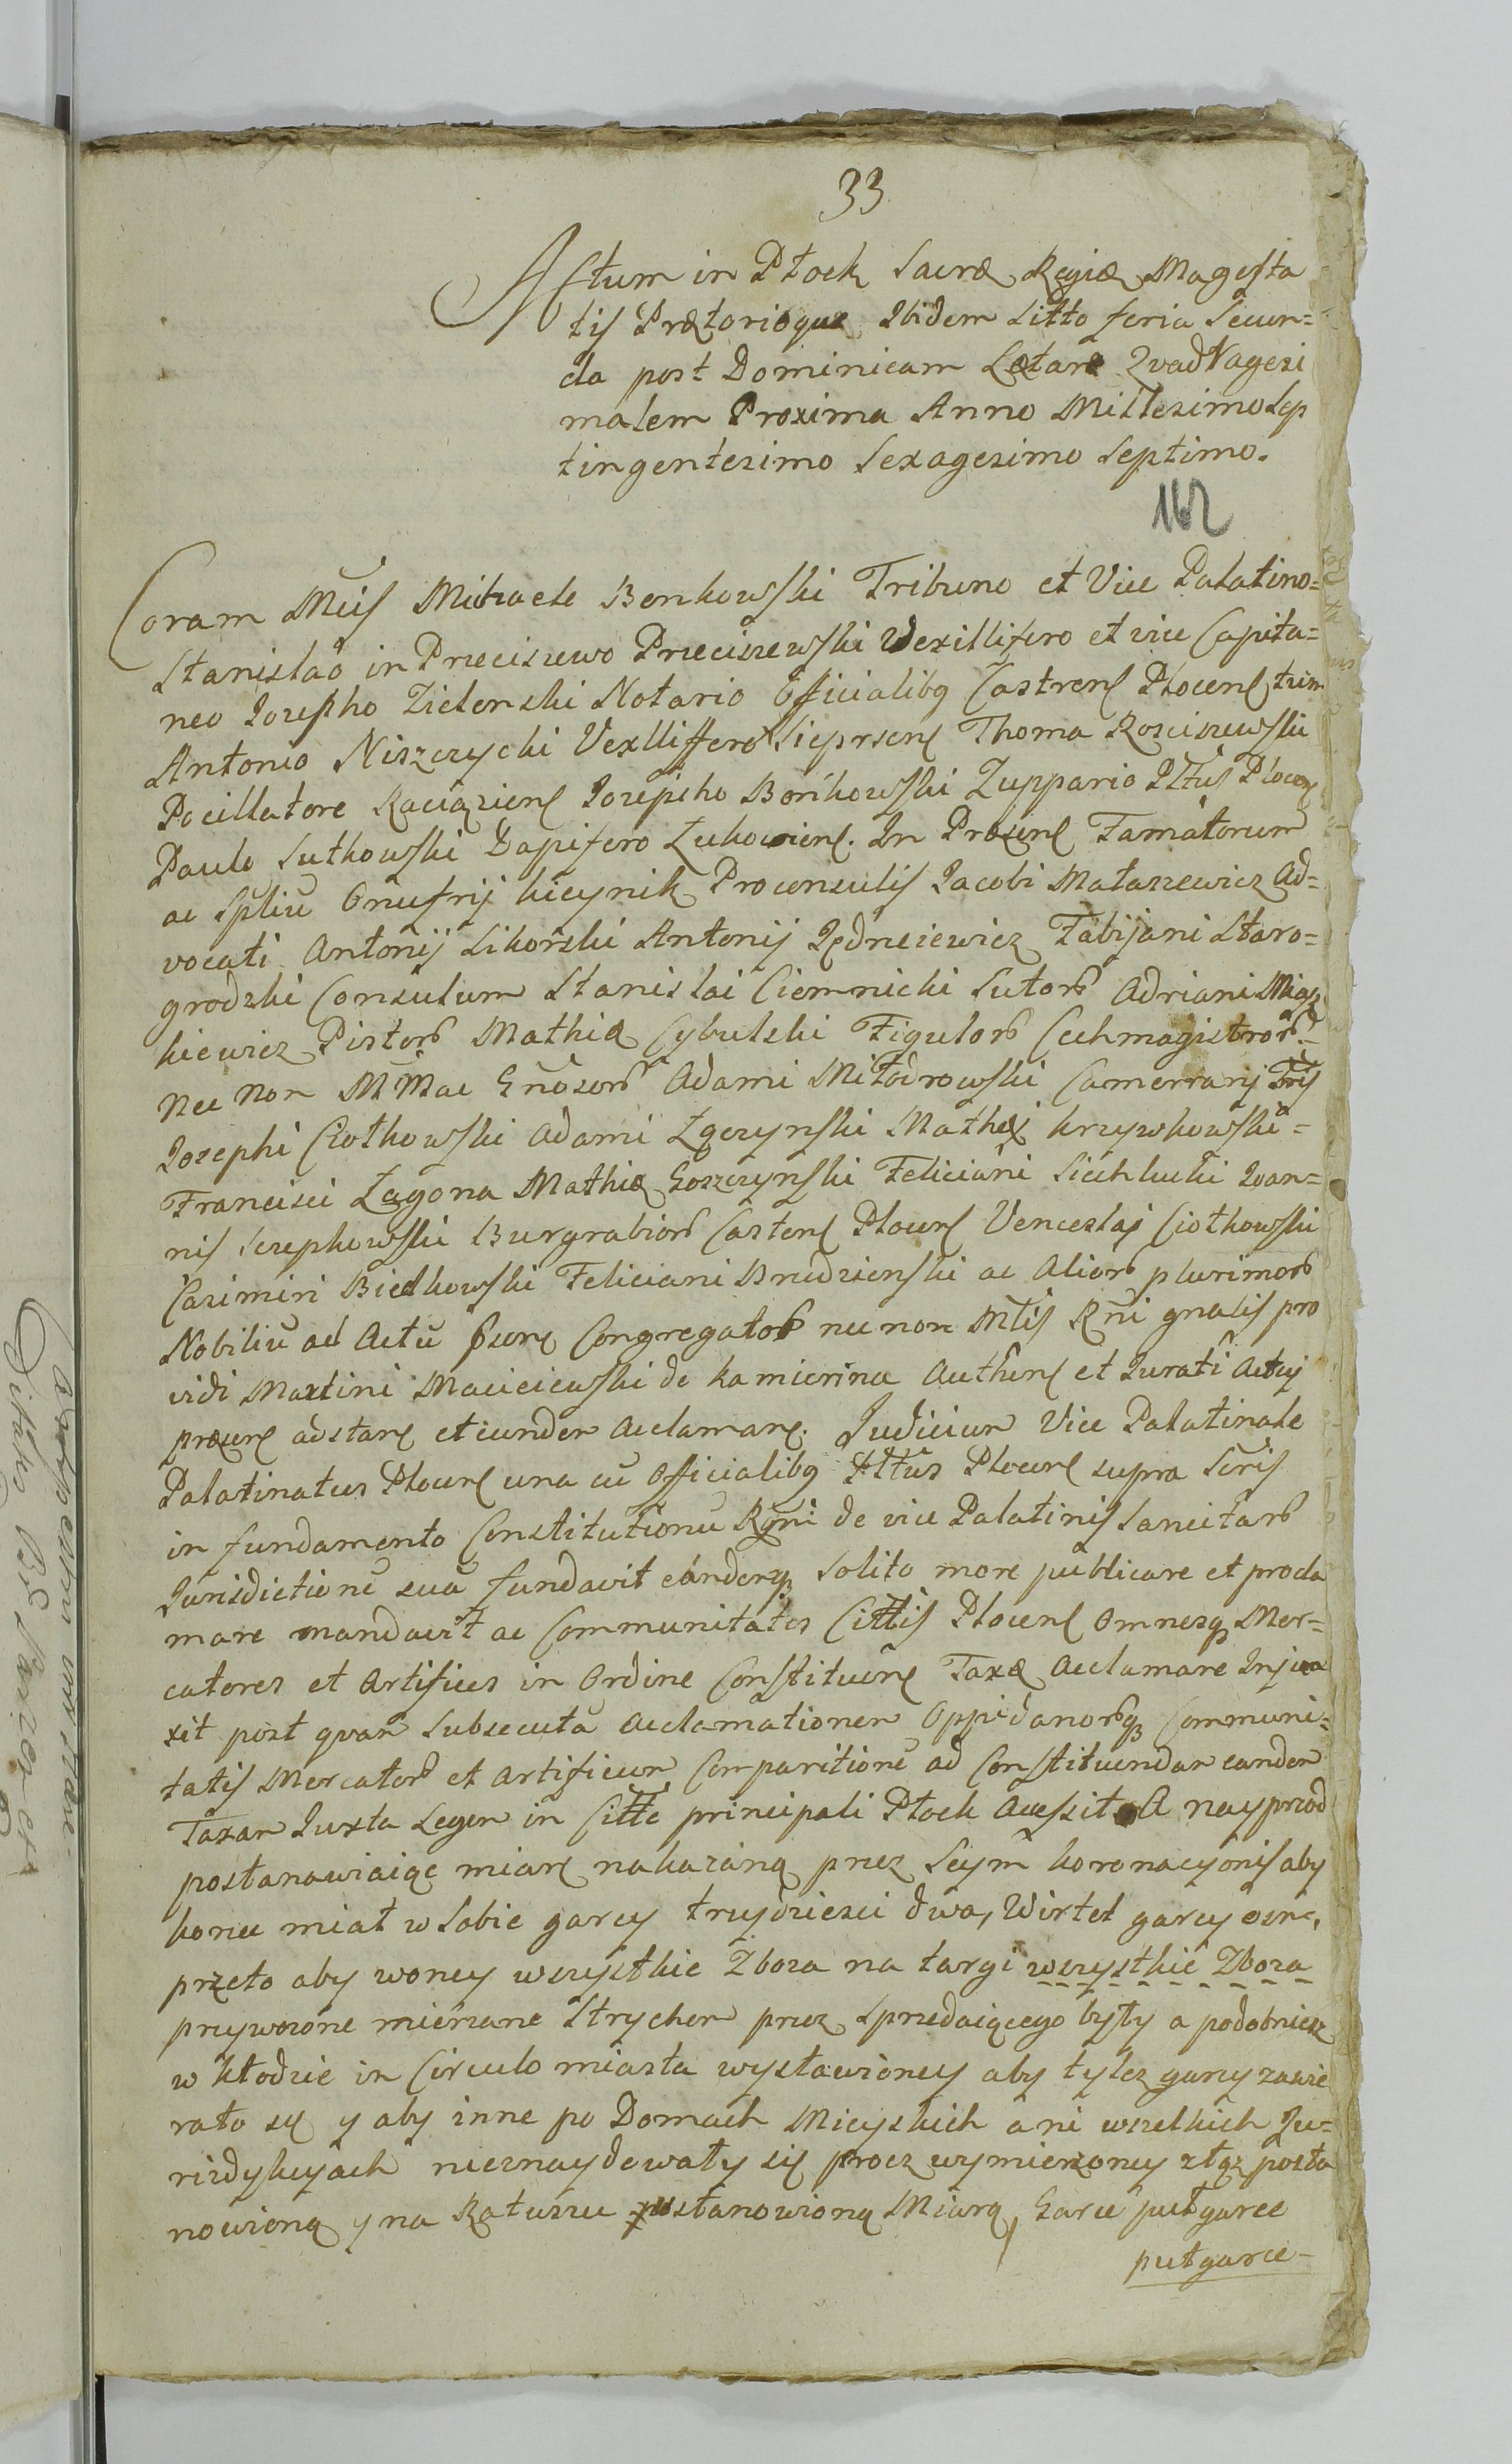 33
Actum in Płock Sacræ Regiæ Magesta
tis Prætorioque Ibidem Sitto feria Secun=
da post Dominicam Lætare Quadragesi
malem Proxima Anno Millesimo Sep
tingentesimo Sexagesimo Septimo.
162
Coram Mcis Michaele Bonkowski Tribuno et Vice Palatino=
Stanislao in Przeciszewo Przeciszewski Vexillifero et vice Capita=
neo Josepho Zielenski Notario Officialibq Castrens Plocens
Antonio Niszczycki Vexlliffero Sieprsens Thoma Kosciszewski
Pocillatore Raciąziens Josepho Bonkowski Zuppario Plocens
Paulo Sutkowski Dapifero Lukowiens. In Præsens Famatorum
ac Spliu Onufrij Kicynik Proconsulis Jacobi Mataszewicz Ad=
vocati Antonij Sikorski Antonij Jędrusiewicz Fabijani Staro=
grodzki Consulum Stanislai Ciemnicki Sutor Adriani Miaz
kiewicz Pistor Mathiæ Cybulski Figulor Cechmagistror=
Nec Non MMac Gnosor Adami Miłodrowski Camerrarij
Josephi Ciołkowski Adami Zgczynski Mathei Krzywkowski=
Francisci Łagona Mathiæ Goszczynski Feliciani Siechlucki Joan=
nis Szczepkowski Burgrabior Castens Plocens Venceslaj Ciołkowski
Casimiri Bielkowski Feliciani Brudzienski ac Alior plurimor
Nobiliu ad Actu psens Congregator nec non Mtis Rni gnalis pro
vidi Martini Macieiewski de Kamienica Authens et Jurati Actuj
præsens adstans et eundem Acclamans. Judicium Vice Palatinale
Palatinatus Plocens una cu Officialibq Plocens supra Scris
in fundamento Constitutionu Rgni de vice Palatinis Sancitar
Jurisdictione sua fundavit eandemq Solito more publicare et procla
mare mandavit ac Communitates Cittis Plocens Omnesq Mer=
catores et Artifices in Ordine Constituens Taxæ Acclamare Injun
xit post quam Subsecuta Acclamationem Oppidanorq Communi=
tatis Mercator et Artificum Comparitione ad Constituendam eandem
Taxam Juxta Legem in Citte principali Płock Accessit A nayprzod
postanawiaiąc miarę nakazaną przez Seym koronacyonis aby
korzec miał w Sobie garcy trzydziesci dwa, Wirtel garcy osm,
przeto aby w oney wszystkie Zboza na targi wszystkie Zboza
przywozone mierzane Strychem przez Sprzedaiącego były a podobniesz
w kłodzie in Circulo miasta wystawioney aby tylesz garcy zawie
rało się y aby inne po Domach Mieyskich ani wszelkich Ju=
rizdykcyach nieznaydowały się procz wymierzoney ztąz posta
nowioną y na Ratuszu ustanowioną Miarą, Garce pułgarce
pułgarce=